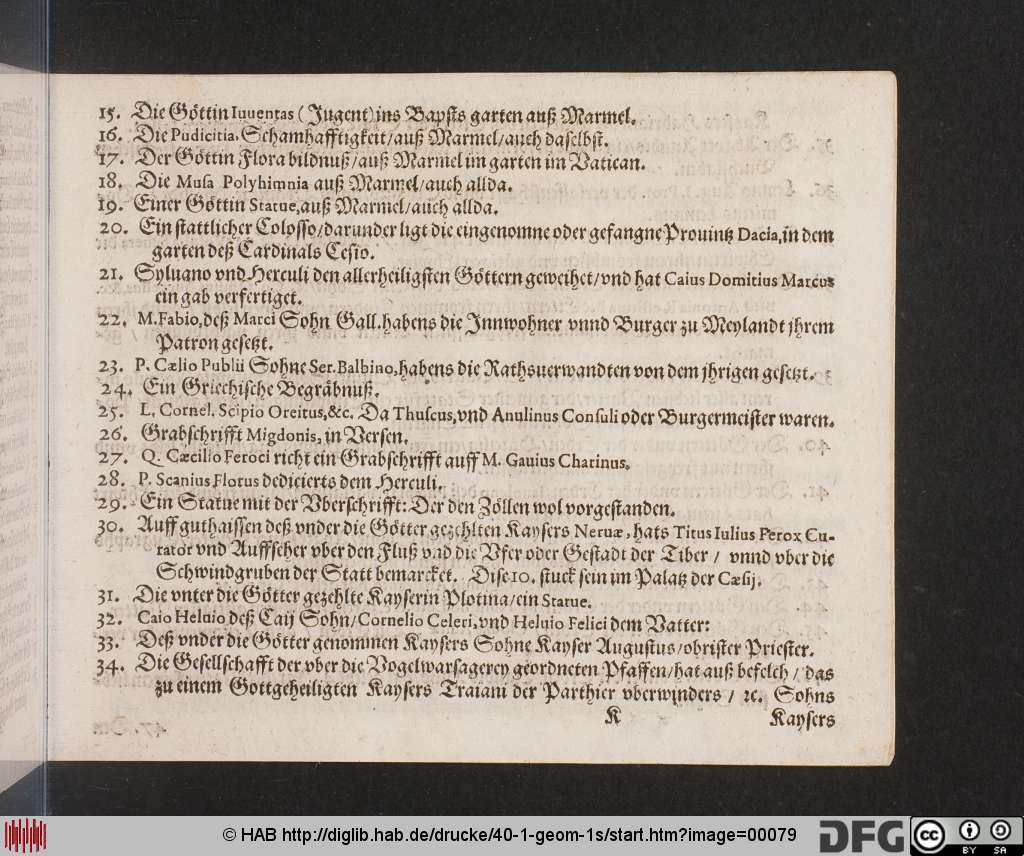 15. Die Göttin Iuuentas (Jugent) ins Bapsts garten auß Marmel.
16. Die Pudicitia, Schamhafftigkeit/auß Marmel/auch daselbst.
17. Der Göttin Flora bildnuß/auß Marmel im garten im Vatican.
18. Die Musa Polyhimnia auß Marmel/auch allda.
19. Einer Göttin Statue, auß Marmel/auch allda.
20. Ein stattlicher Colosso/darunder ligt die eingenomne oder gefangne Prouintz Dacia, in dem
garten deß Cardinals Cesio.
21. Syluano vnd Herculi den allerheiligsten Göttern geweihet/vnd hat Caius Domitius Marcus
ein gab verfertiget.
22. M. Fabio, deß Marci Sohn Gall. habens die Innwohner vnnd Burger zu Meylandt jhrem
Patron gesetzt.
23. P. Cælio Publii Sohne Ser. Balbino, habens die Rathsuerwandten von dem jhrigen gesetzt.
24. Ein Griechische Begräbnuß.
25. L. Cornel. Scipio Oreitus, &c. Da Thuscus, vnd Anulinus Consuli oder Burgermeister waren.
26. Grabschrifft Migdonis, in Versen.
27. Q. Cæcilio Feroci richt ein Grabschrifft auff M. Gauius Charinus.
28. P. Scanius Florus dedicierts dem Herculi.
29. Ein Statue mit der Vberschrifft: Der den Zöllen wol vorgestanden.
30. Auff guthaissen deß vnder die Götter gezehlten Kaysers Neruæ, hats Titus Iulius Perox Cu-
rator vnd Auffseher vber den Fluß vnd die Vfer oder Gestadt der Tiber / vnnd vber die
Schwindgruben der Statt bemarcket. Dise 10. stuck sein im Palatz der Cæsij.
31. Die vnter die Götter gezehlte Kayserin Plotina/ein Statue.
32. Caio Heluio deß Caij Sohn/Cornelio Celeri, vnd Heluio Felici dem Vatter:
33. Deß vnder die Götter genommen Kaysers Sohne Kayser Augustus/obrister Priester.
34. Die Gesellschafft der vber die Vogelwarsagerey geordneten Pfaffen/hat auß befelch / das
zu einem Gottgeheiligten Kaysers Traiani der Parthier vberwinders / ꝛc. Sohns
K Kaysers
© HAB http://diglib.hab.de/drucke/40-1-geom-1s/start.htm?image=00079
DFG
cc BY SA